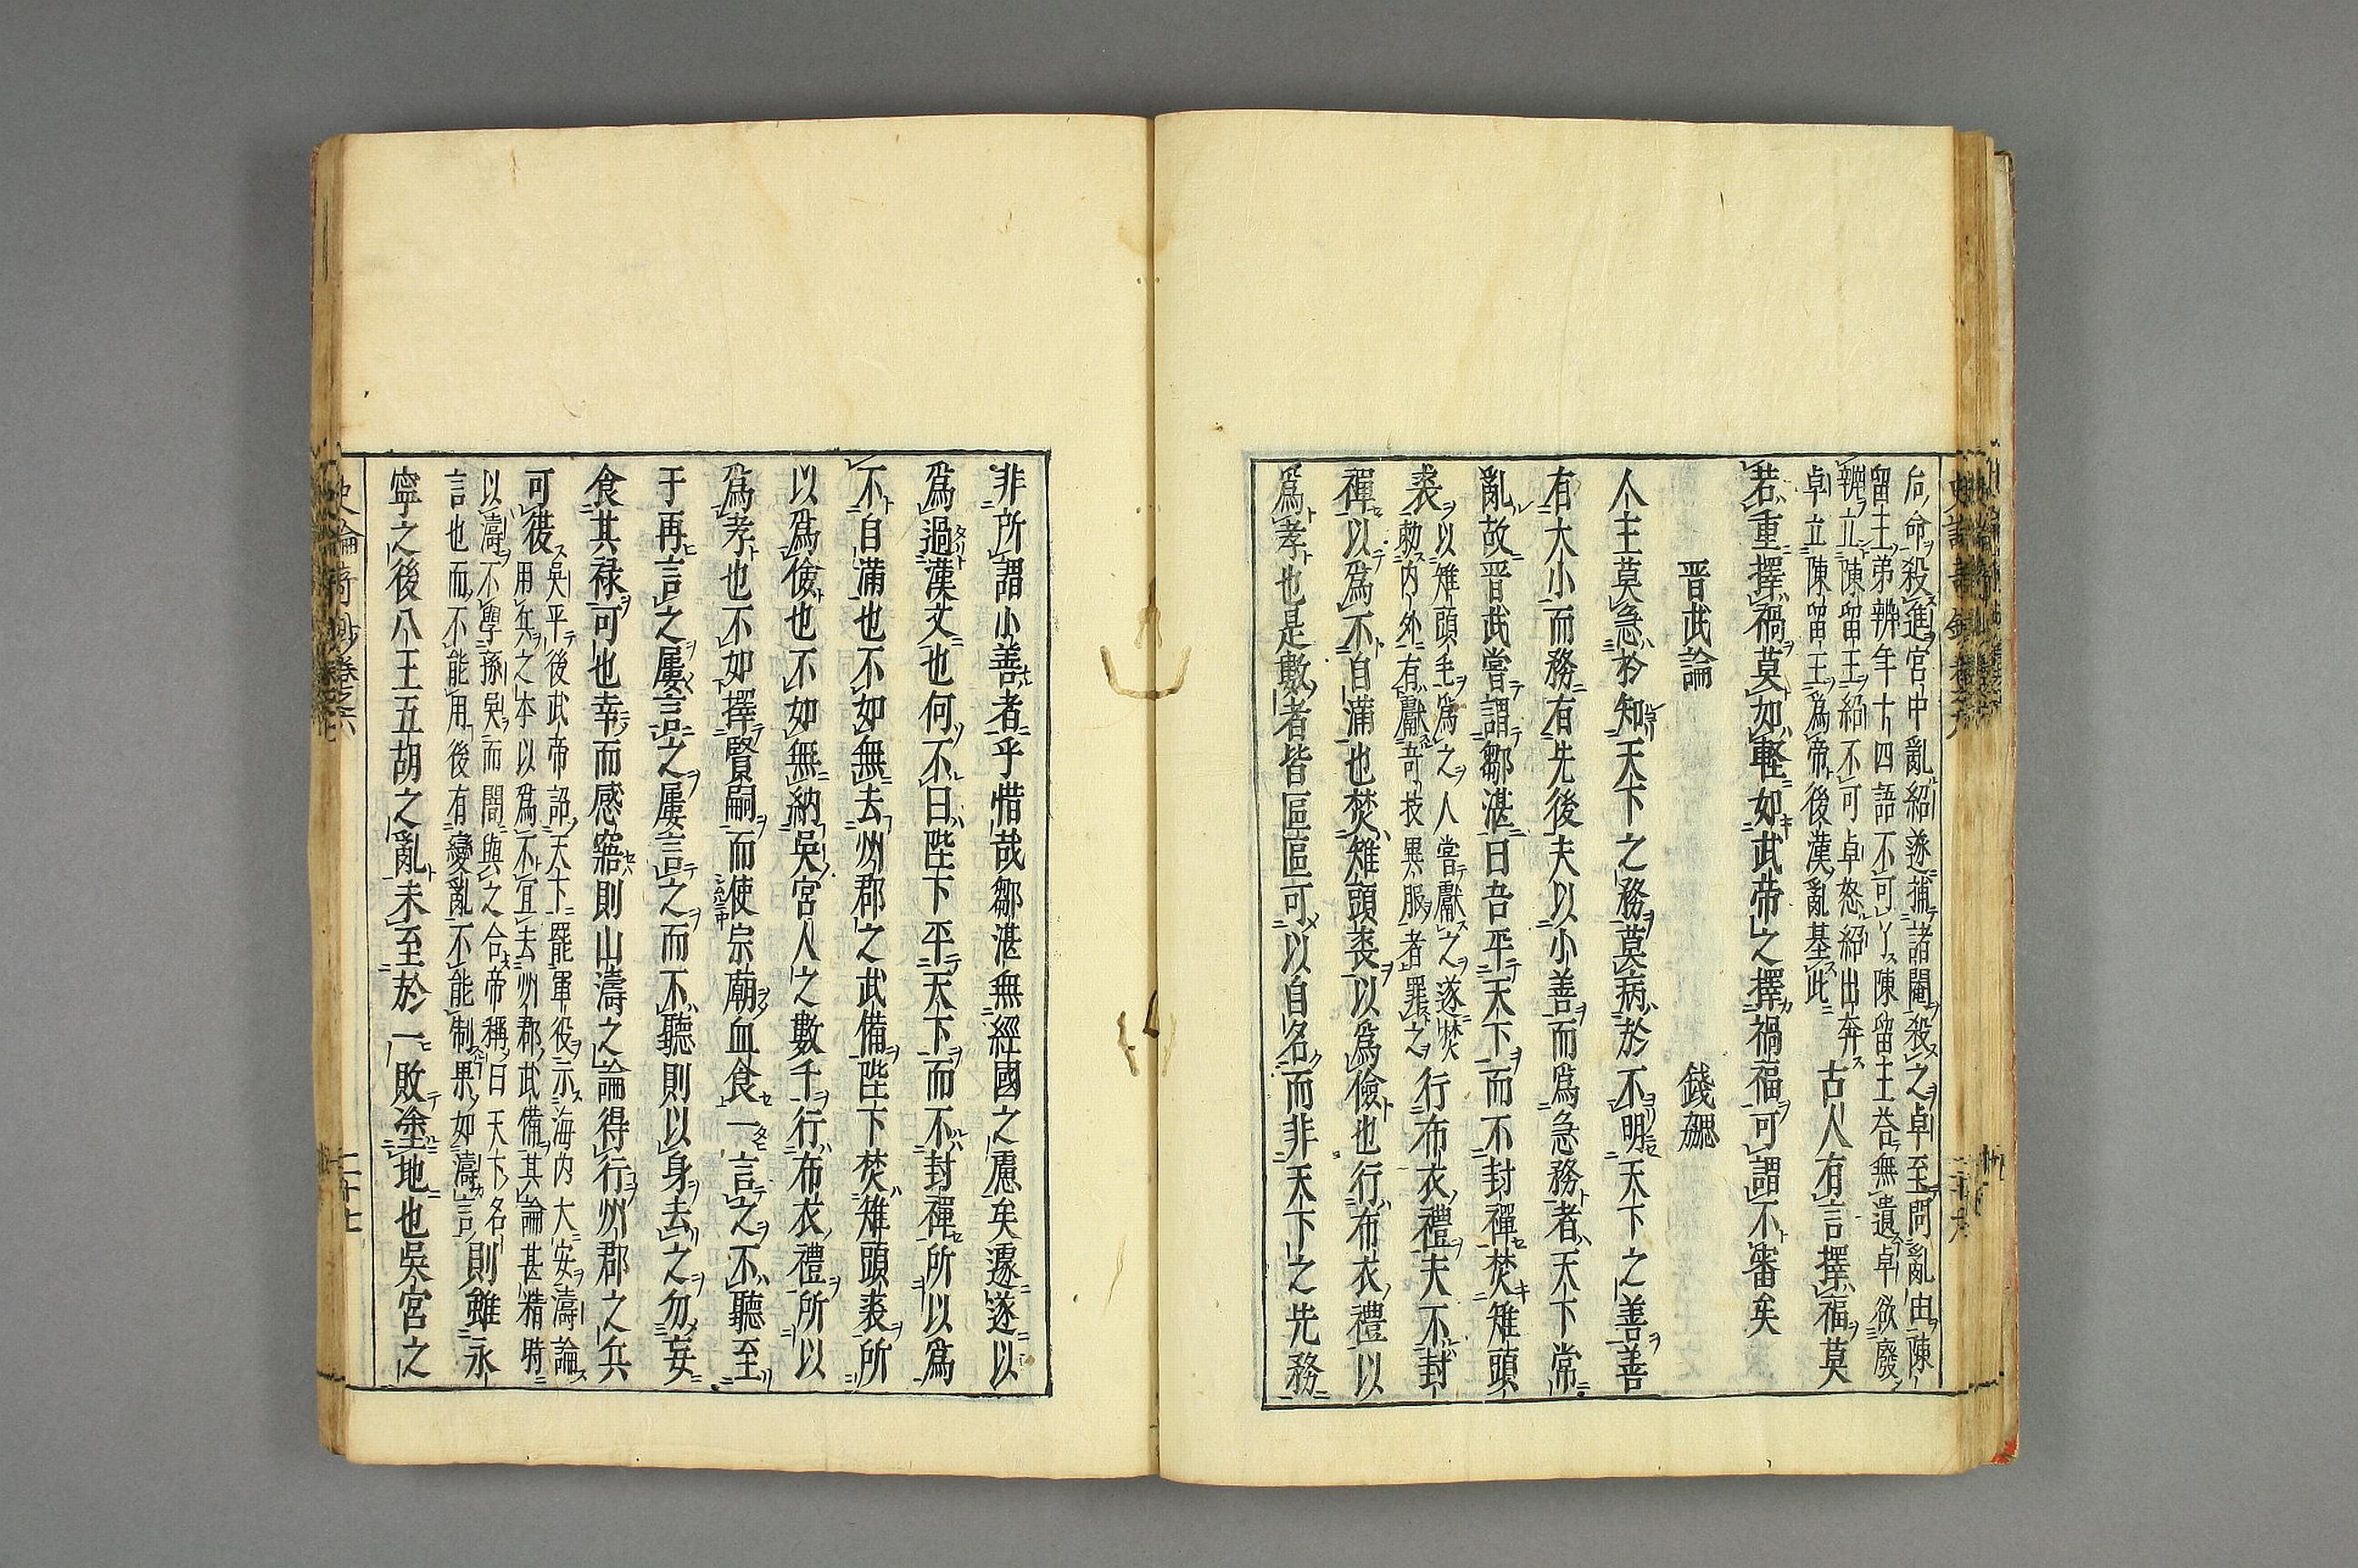 后命殺進宮中亂紹遂捕諸閹殺之卓至問亂由陳
留主弟辨年十四語不可了陳留王荅無遺卓欲廢
辨立陳留王紹不可卓怒紹出奔
卓立陳留王爲帝後漢亂基此
古人有言擇福莫
若重擇禍莫如輕如武帝之擇禍福可謂不審矣
晋武論 錢勰
人主莫急於知天下之務莫病於不明天下之善善
有大小而務有先後夫以小善而爲急務者天下常
亂故晋武嘗謂鄒湛曰吾平天下而不封禪焚雉頭
裘
以雉頭毛爲之人嘗獻之遂焚
勑内外有獻奇技異服者罪之
行布衣禮夫不封
禪以爲不自滿也焚雉頭裘以爲儉也行布衣禮以
爲孝也是數者皆區區可以自名而非天下之先務
非所謂小善者乎惜哉鄒湛無經國之慮矣遽遂以
爲過漢文也何不曰陛下平天下而不封禪所以爲
不自滿也不如無去州郡之武備陛下焚雉頭裘所
以爲儉也不如無納吳宮人之數千行布衣禮所以
爲孝也不如擇賢嗣而使宗廟血食一言之不聽至
于再言之屢言之屢言之而不聽則以身去之勿妄
食其禄可也幸而感寤則山濤之論得行州郡之兵
可復
吳平後武帝詔天下罷軍役示海内大安濤論
用兵之本以爲不宜去州郡武備其論甚精時
以濤不學孫吳而闇與之合帝稱曰天下名
言也而不能用後有變亂不能制果如濤言
則雖永
寧之後八王五胡之亂未至於一敗塗地也吳宮之
史論奇鈔卷之六
二十七